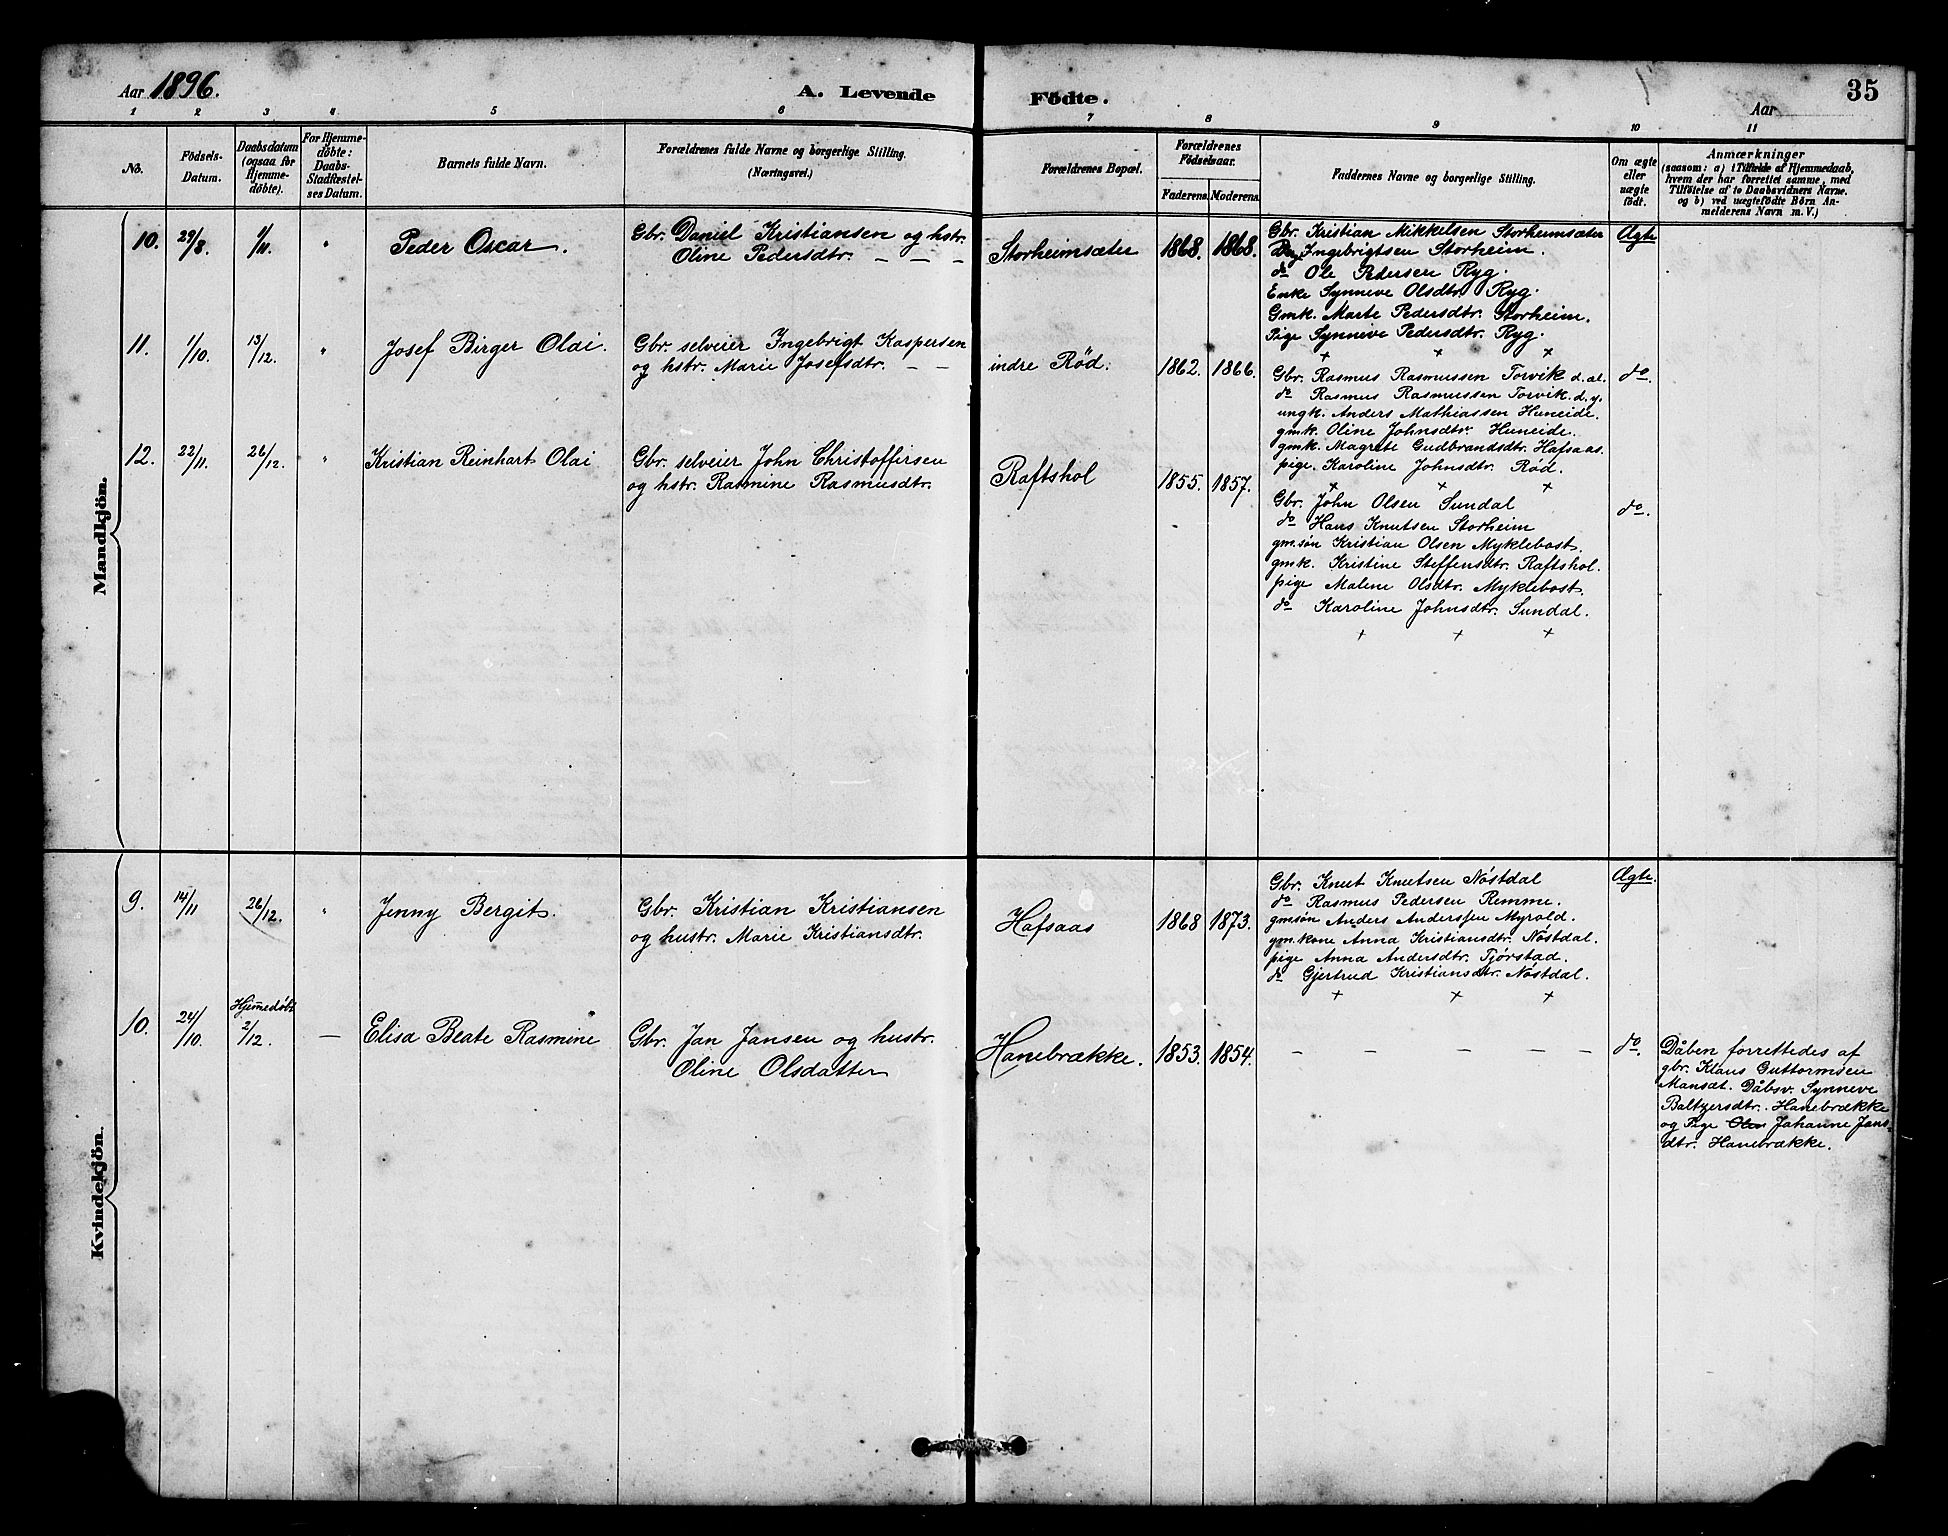 Aar 1896.
A. Levende Födte.
35
Aar
1 2 3 4 5 6 7 8 9 10 11
No.
Födsels-
Datum.
Daabsdatum
(ogsaa for
Hjemme-
döbte).
For Hjemme-
döbte:
Daabs-
Stadfæstel-
ses Datum.
Barnets fulde Navn.
Forældrenes fulde Navne og borgerlige Stilling.
(Næringsvei.)
Forældrenes Bopæl.
Forældrenes
Födselsaar.
Faderens. Moderens.
Faddernes Navne og borgerlige Stilling.
Om ægte
eller
uægte
födt.
Anmærkninger
(saasom: a) i Tilfælde af Hjemmedaab,
hvem der har forrettet samme, med
Tilföielse af to Daabsvidners Navne.
og b) ved uægtefödte Börn An-
melderens Navn m. V.)
Mandkjön.
10. 29/8. 1/11. " Peder Oscar.
Gbr. Daniel Kristiansen og hstr.
Oline Pedersdtr. — — —
Storheimsæter 1868. 1868.
Gbr. Kristian Mikkelsen Storheimsæter
Ingebrigtsen Storheim.
do Ole Pedersen Ryg.
Enke Synneve Olsdtr. Ryg.
Gmk. Marte Pedersdtr. Storheim.
Pige Synneve Pedersdtr. Ryg.
+ + +
Ægte
11. 1/10. 13/12. " Josef Birger Olai.
Gbr. selveier Ingebrigt Kaspersen
og hstr. Marie Josefsdtr. — —
indre Rød. 1862. 1866.
Gbr. Rasmus Rasmussen Torvik d. æl.
do Rasmus Rasmussen Torvik. d. y.
ungk. Anders Mathiassen Huneide.
gmk. Oline Johnsdtr. Huneide.
gmk. Magrete Gudbrandsdtr. Hafsaas.
pige. Karoline Johnsdtr. Rød.
+ + +
do.
12. 22/11. 26/12. " Kristian Reinhart Olai
Gbr. selveier John Christoffersen
og hstr. Rasmine Rasmusdtr.
Raftshol 1855. 1857.
Gbr. John Olsen Sundal
do Hans Knutsen Storheim
gm.søn Kristian Olsen Myklebost.
gmk. Kristine Steffensdtr. Raftshol.
pige Malene Olsdtr. Myklebost.
do Karoline Johnsdtr. Sundal.
+ + +
do.
Kvindekjön.
9. 14/11 26/12. " Jenny Bergit.
Gbr. Kristian Kristiansen
og hustr. Marie Kristiansdtr.
Hafsaas 1868 1873.
Gbr. Knut Knutsen Nöstdal
do Rasmus Pedersen Remme.
gmsøn Anders Anderssen Myrold.
gm.kone Anna Kristiansdtr. Nöstdal.
pige Anna Andersdtr. Tjørstad.
do Gjertrud Kristiansdtr. Nöstdal.
+ + +
Ægte.
10. 24/10. Hjemmedöbt
2/12. — Elisa Beate Rasmine
Gbr. Jan Jansen og hustr.
Oline Olsdatter
Hanebrække. 1853. 1854.
— — — — —
do.
Dåben forrettedes af
gbr. Klaus Guttormsen
Mansæt. Dåbsv. Synneve
Baltzersdtr. Hanebrække
og Pige Johanne Jans-
dtr. Hanebrække.